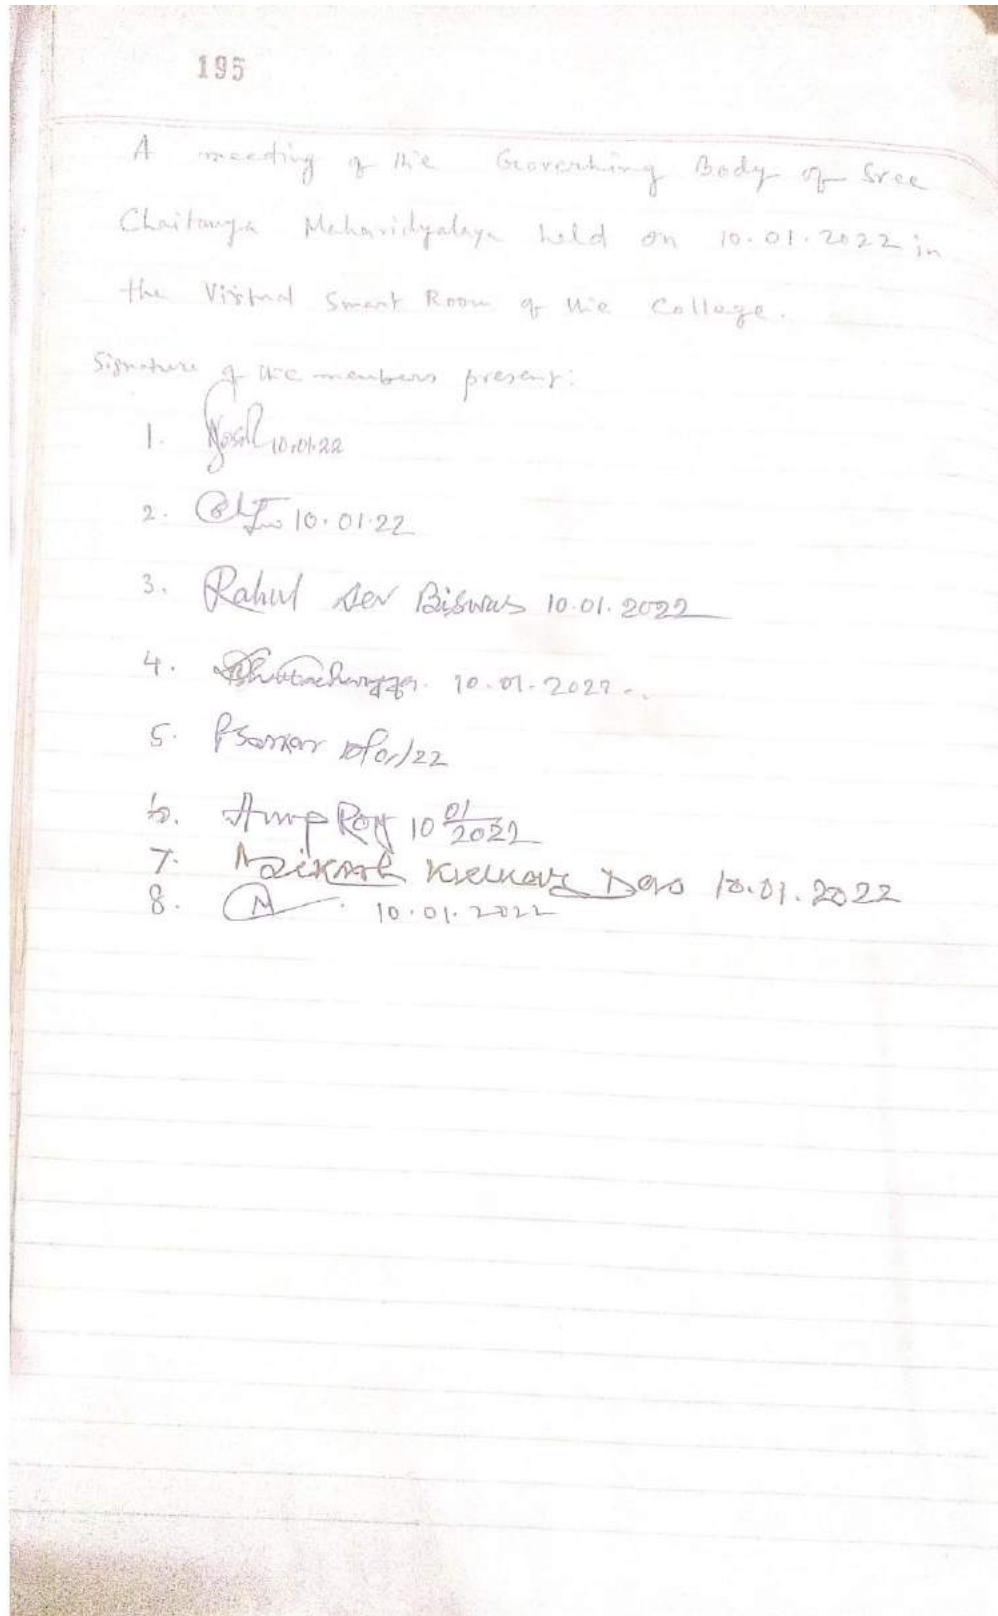 195
A meeting of the Governing Body of Sree
Chaitanya Mahavidyalaya held on 10.01.2022 in
the Virtual Smart Room of the College.
Signature of the members present:
1. 10.01.22
2. 10.01.22
3. Rahul Dev Biswas 10.01.2022
4. Bhattacharyya. 10.01.2022
5. PSarkar 10/01/22
6. Anup Roy 10 01/2022
7. Bikash Kumar Das 10.01.2022
8. 10.01.2022